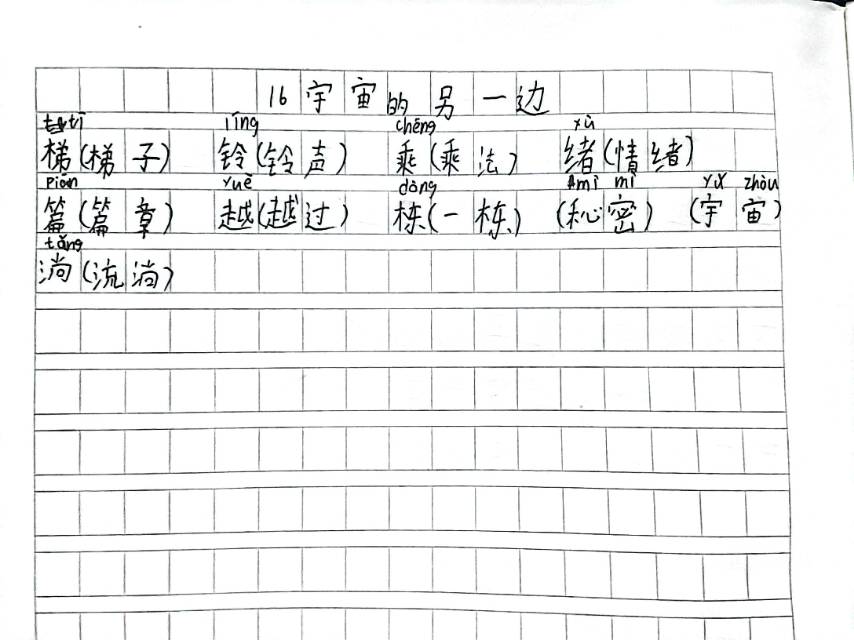 16 宇宙的另一边
tī líng chéng xù
梯(梯子) 铃(铃声) 乘(乘法) 绪(情绪)
piān yuè dòng mì mì yǔ zhòu
篇(篇章) 越(越过) 栋(一栋) (秘密) (宇宙)
tǎng
淌(流淌)